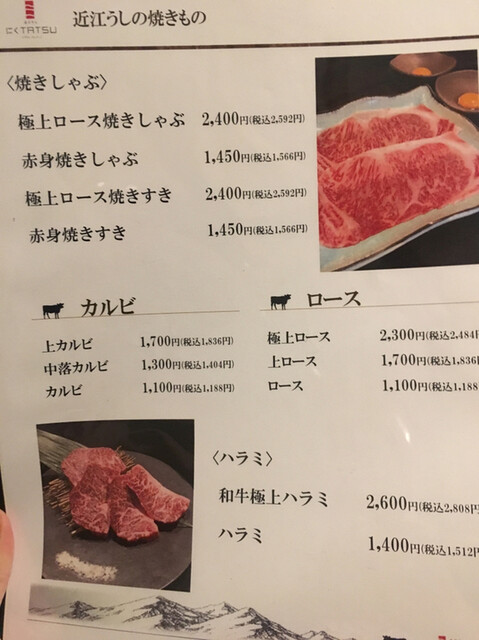 にくTATSU
近江うしの焼きもの
〈焼きしゃぶ〉
極上ロース焼きしゃぶ 2,400円(税込2,592円)
赤身焼きしゃぶ 1,450円(税込1,566円)
極上ロース焼きすき 2,400円(税込2,592円)
赤身焼きすき 1,450円(税込1,566円)
カルビ
上カルビ 1,700円(税込1,836円)
中落カルビ 1,300円(税込1,404円)
カルビ 1,100円(税込1,188円)
ロース
極上ロース 2,300円(税込2,484円
上ロース 1,700円(税込1,836
ロース 1,100円(税込1,188
〈ハラミ〉
和牛極上ハラミ 2,600円(税込2,808円
ハラミ 1,400円(税込1,512円